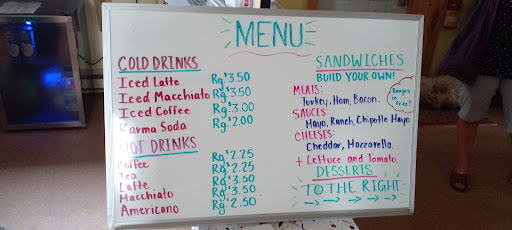 MENU
COLD DRINKS
Iced Latte Rg. $3.50
Iced Macchiato Rg. $3.50
Iced Coffee Rg. $3.00
Karma Soda Rg. $2.00
HOT DRINKS
Coffee Rg. $2.25
Tea Rg. $2.25
Latte Rg. $3.50
Macchiato Rg. $3.50
Americano Rg. $2.50
SANDWICHES
BUILD YOUR OWN!
MEATS:
Turkey, Ham, Bacon.
SAUCES:
Mayo, Ranch, Chipotle Mayo
CHEESES:
Cheddar, Mozzarella.
+ Lettuce and Tomato.
Ranges in Price!!
DESSERTS
TO THE RIGHT